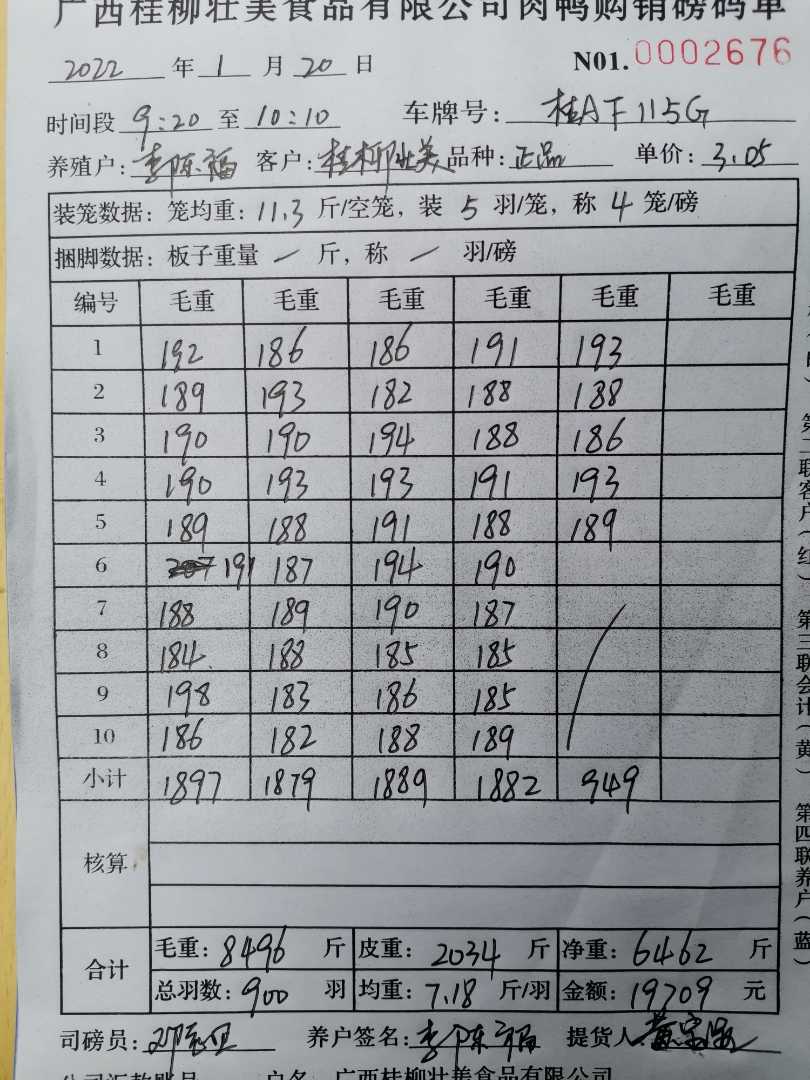 广西桂柳壮美食品有限公司肉鸭购销磅码单
2022 年 1 月 20 日 N01. 0002676
时间段 9:20 至 10:10 车牌号: 桂AF115G
养殖户: 李陈福 客户: 桂柳壮美 品种: 正品 单价: 3.05
装笼数据: 笼均重: 11.3 斤/空笼, 装 5 羽/笼, 称 4 笼/磅
捆脚数据: 板子重量 / 斤, 称 / 羽/磅
编号 毛重 毛重 毛重 毛重 毛重 毛重
1 192 186 186 191 193
2 189 193 182 188 188
3 190 190 194 188 186
4 190 193 193 191 193
5 189 188 191 188 189
6 207 191 187 194 190
7 188 189 190 187
8 184 188 185 185
9 198 183 186 185
10 186 182 188 189
小计 1897 1879 1889 1882 949
核算
合计
毛重: 8496 斤 皮重: 2034 斤 净重: 6462 斤
总羽数: 900 羽 均重: 7.18 斤/羽 金额: 19709 元
司磅员: 养户签名: 李陈福 提货人
户名 广西桂柳壮美食品有限公司
第二联客户(红) 第三联会计(黄) 第四联养户(蓝)